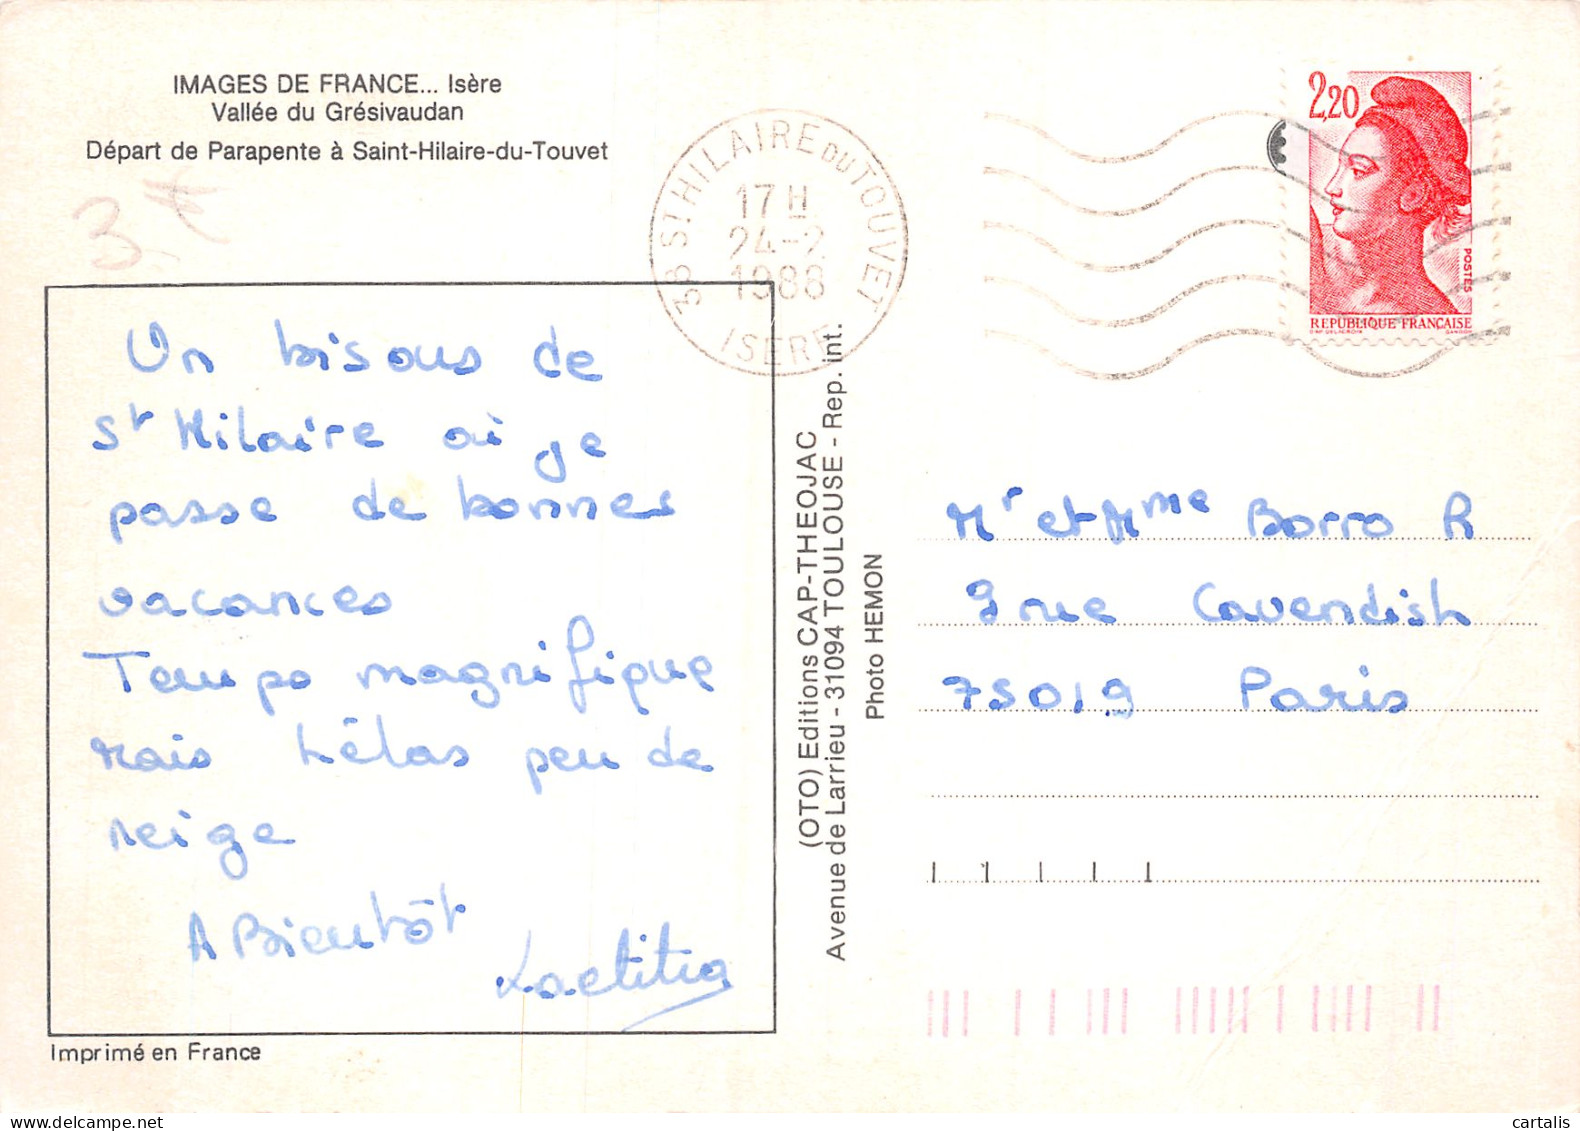 IMAGES DE FRANCE... Isère
Vallée du Grésivaudan
Départ de Parapente à Saint-Hilaire-du-Touvet
3 €
38 ST HILAIRE DU TOUVET
17 H
24-2
1988
ISERE
2,20
POSTES
REPUBLIQUE FRANÇAISE
D'AP. DELACROIX GANDON
Un bisous de
St Hilaire où je
passe de bonnes
vacances
Temps magnifique
mais hélas peu de
neige
A Bientôt
Laetitia
Imprimé en France
(OTO) Editions CAP-THEOJAC
Avenue de Larrieu - 31094 TOULOUSE - Rep. int.
Photo HEMON
Mr et Mme Borro R
9 rue Cavendish
75019 Paris
cartalis